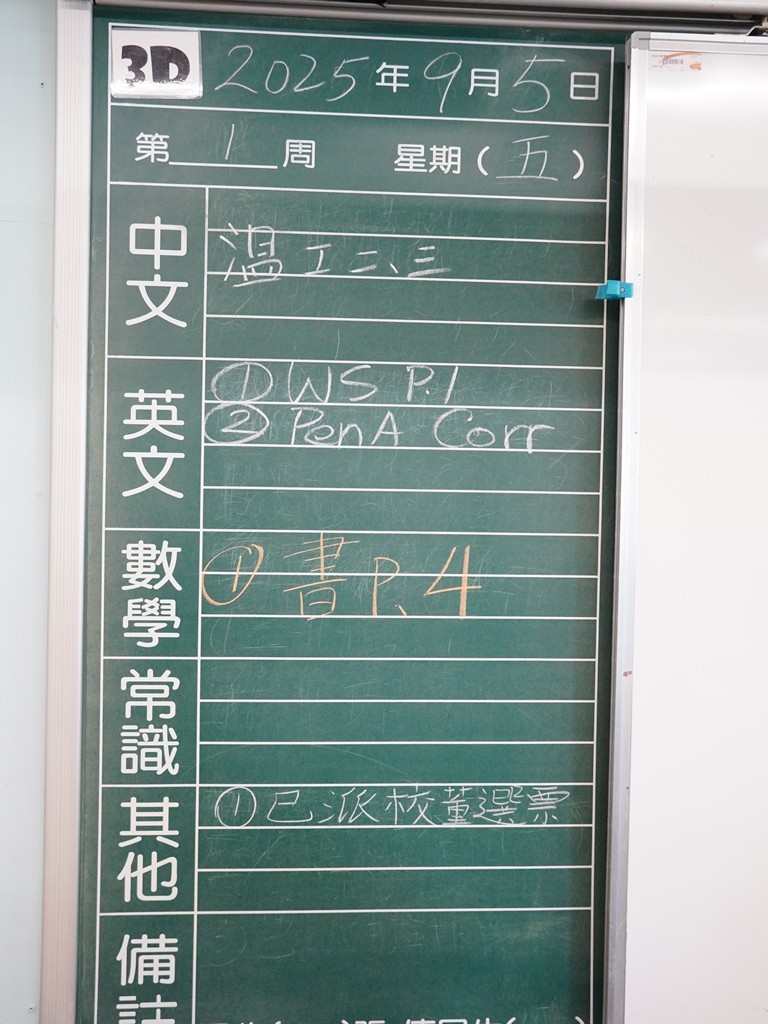 3D 2025年9月5日
第1周 星期(五)
中文
溫工二、三
英文
① WS P.1
② PenA Corr
數學
① 書P.4
常識
其他
① 已派校董選票
備註